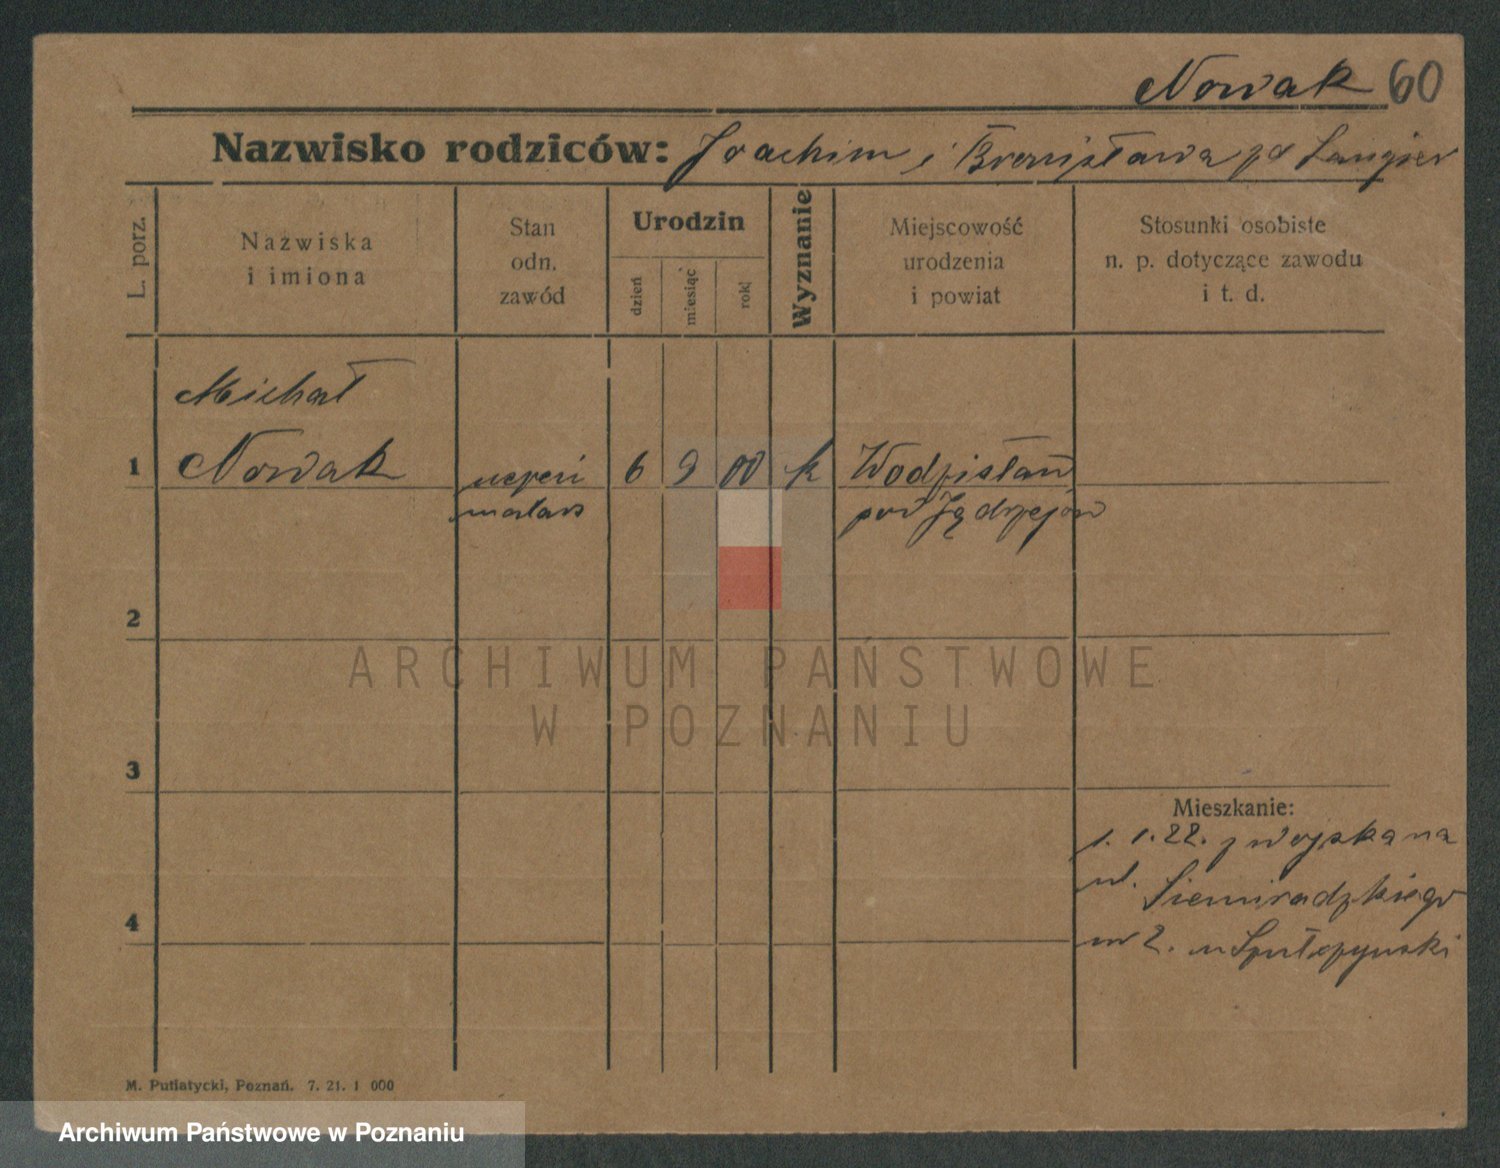 Nowak 60
Nazwisko rodziców: Joachim i Bronisława zd Langier
L. porz.
Nazwiska
i imiona
Stan
odn.
zawód
Urodzin
dzień
miesiąc
rok
Wyznanie
Miejscowość
urodzenia
i powiat
Stosunki osobiste
n. p. dotyczące zawodu
i t. d.
Michał
1 Nowak uczeń 6 9 00 k Wodzisław
malars pow Jędrzejów
2
ARCHIWUM PAŃSTWOWE
W POZNANIU
3
Mieszkanie:
1. 1. 22. z wojska na
ul. Siemiradzkiego
4
nr 2. u
M. Putiatycki, Poznań. 7. 21. 1 000
Archiwum Państwowe w Poznaniu